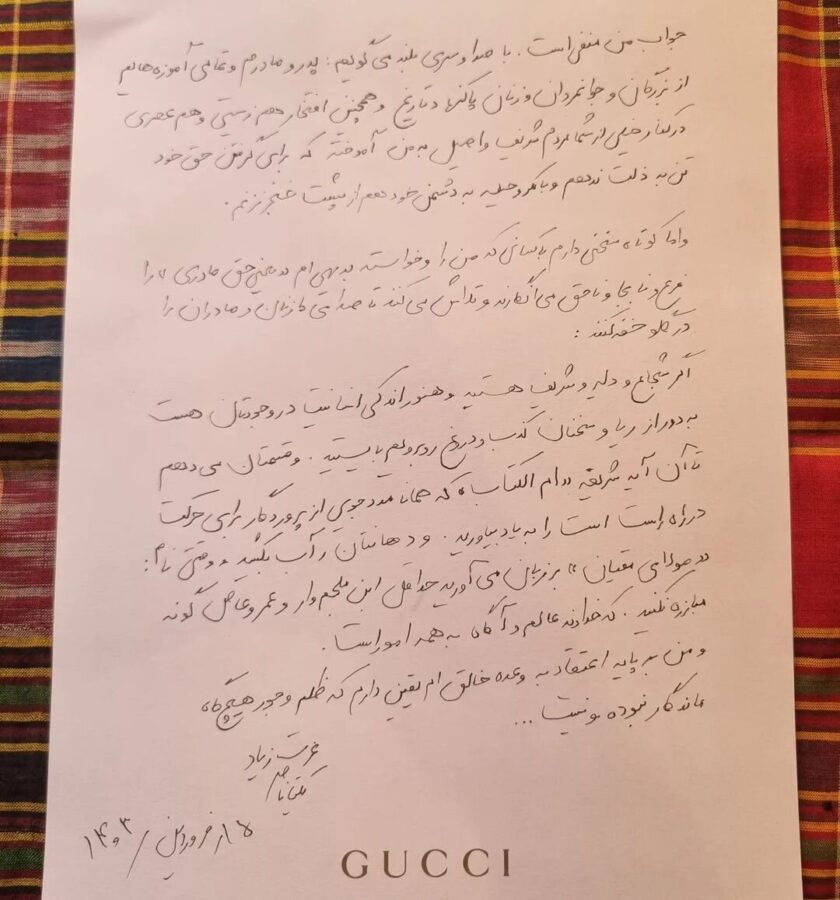 جواب من منفی است. با صدا و سری بلند می گویم: پدر و مادرم و تمامی آموزه هایم
از بزرگان و جوانمردان و زنان پاکنهاد تاریخ و همچنین افتخار هم زیستی و هم عصری
در کنار خیلی از شما مردم شریف و اصیل به من آموخته که برای گرفتن حق خود
تن به ذلت ندهم و با مکر و حیله به دشمن خود هم از پشت خنجر نزنم.
و اما کوتاه سخنی دارم با کسانی که من را و خواسته بدیهی ام «یعنی حق مادری» را
نابجا و ناحق می انگارند و تلاش می کنند تا صدای زنان و مادران را
در گلو خفه کنند:
اگر شجاع و دلیر و شریف هستید و هنوز اندکی انسانیت در وجودتان هست
به دور از ریا و سخنان کذب و دروغ روبرویم بایستید. و قسمتان می دهم
تا آن آیه شریفه «ام الکتاب» که همانا مددجویی از پروردگار برای حرکت
در راه راست است را به یاد بیاورید. و دهانتان را آب بکشید وقتی نام:
«مولای متقیان» بر زبان می آورید حداقل ابن ملجم وار و عمروعاص گونه
مبارزه نکنید. که خداوند عالم و آگاه به همه امور است.
و من بر پایه اعتقاد به وعده خالق ام یقین دارم که ظلم و جور هیچگاه
ماندگار نبوده و نیست...
عزت زیاد
مهناز
۱۵ از فروردین / ۱۴۰۳
GUCCI